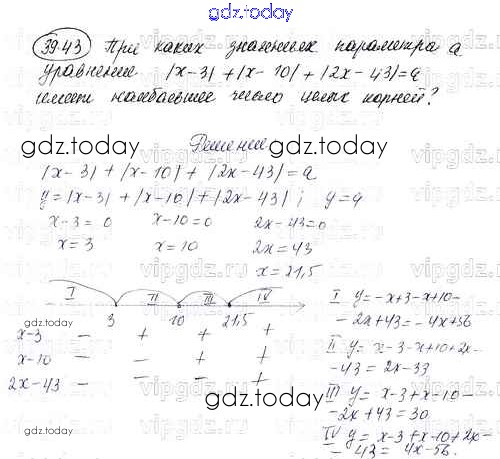 gdz.today
39.43 При каких значениях параметра a
уравнение |x-3| + |x-10| + |2x-43| = a
имеет наибольшее число целых корней?
Решение
gdz.today gdz.today
|x-3| + |x-10| + |2x-43| = a
y = |x-3| + |x-10| + |2x-43| ; y = a
x-3 = 0 x-10 = 0 2x-43 = 0
x = 3 x = 10 2x = 43
x = 21,5
I II III IV
3 10 21,5
gdz.today
x-3 - + + +
x-10 - - + +
2x-43 - - - +
I y = -x+3-x+10-
-2x+43 = -4x+56
II y = x-3-x+10+2x-
-43 = 2x-33
III y = x-3+x-10-
-2x+43 = 30
IV y = x-3+x-10+2x-
-43 = 4x-56.
gdz.today
gdz.today
gdz.today